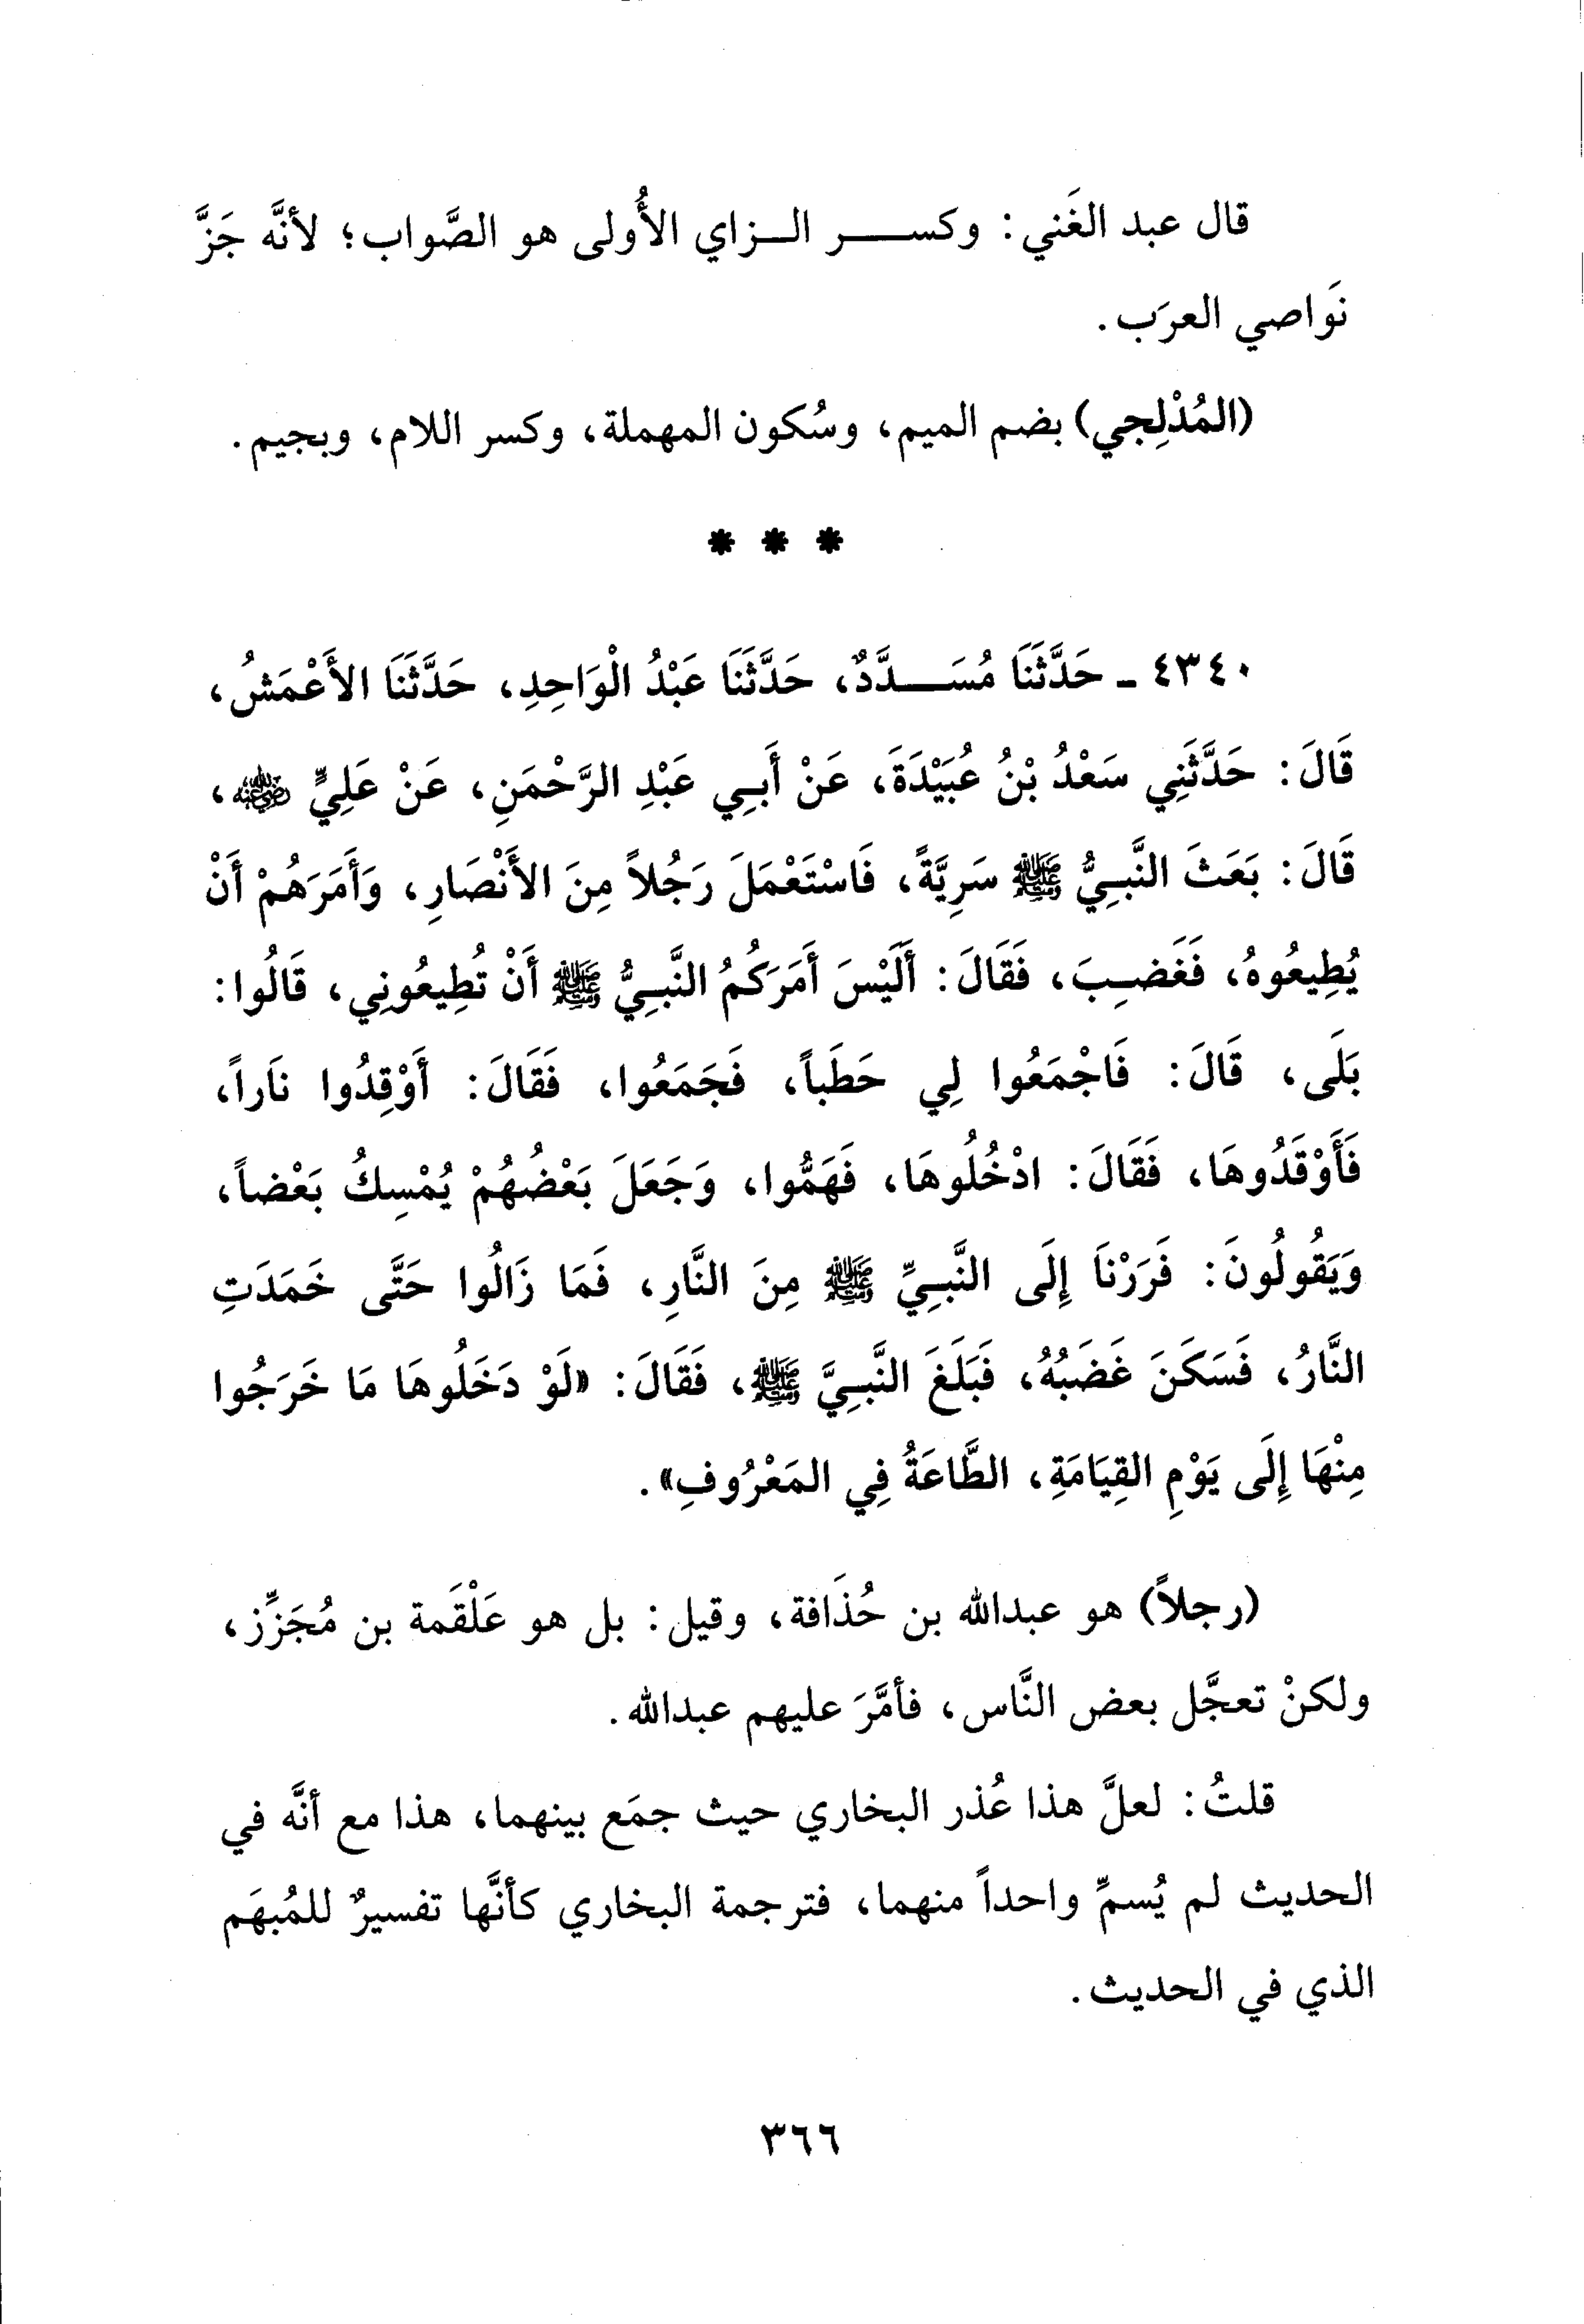 قال عبد الغَني: وكسر الزاي الأُولى هو الصَّواب؛ لأنَّه جَزَّ
نَواصي العرَب.
(المُدْلِجي) بضم الميم، وسُكون المهملة، وكسر اللام، وبجيم.
* * *
٤٣٤٠ - حَدَّثَنَا مُسَدَّدٌ، حَدَّثَنَا عَبْدُ الْوَاحِدِ، حَدَّثَنَا الأَعْمَشُ،
قَالَ: حَدَّثَنِي سَعْدُ بْنُ عُبَيْدَةَ، عَنْ أَبِي عَبْدِ الرَّحْمَنِ، عَنْ عَلِيٍّ رضي الله عنه،
قَالَ: بَعَثَ النَّبِيُّ ﷺ سَرِيَّةً، فَاسْتَعْمَلَ رَجُلاً مِنَ الأَنْصَارِ، وَأَمَرَهُمْ أَنْ
يُطِيعُوهُ، فَغَضِبَ، فَقَالَ: أَلَيْسَ أَمَرَكُمُ النَّبِيُّ ﷺ أَنْ تُطِيعُونِي، قَالُوا:
بَلَى، قَالَ: فَاجْمَعُوا لِي حَطَباً، فَجَمَعُوا، فَقَالَ: أَوْقِدُوا نَاراً،
فَأَوْقَدُوهَا، فَقَالَ: ادْخُلُوهَا، فَهَمُّوا، وَجَعَلَ بَعْضُهُمْ يُمْسِكُ بَعْضاً،
وَيَقُولُونَ: فَرَرْنَا إِلَى النَّبِيِّ ﷺ مِنَ النَّارِ، فَمَا زَالُوا حَتَّى خَمَدَتِ
النَّارُ، فَسَكَنَ غَضَبُهُ، فَبَلَغَ النَّبِيَّ ﷺ، فَقَالَ: «لَوْ دَخَلُوهَا مَا خَرَجُوا
مِنْهَا إِلَى يَوْمِ القِيَامَةِ، الطَّاعَةُ فِي المَعْرُوفِ».
(رجلاً) هو عبدالله بن حُذَافة، وقيل: بل هو عَلْقَمة بن مُجَزِّز،
ولكنْ تعجَّل بعض النَّاس، فأمَّرَ عليهم عبدالله.
قلتُ: لعلَّ هذا عُذر البخاري حيث جمَع بينهما، هذا مع أنَّه في
الحديث لم يُسمِّ واحداً منهما، فترجمة البخاري كأنَّها تفسيرٌ للمُبهَم
الذي في الحديث.
٣٦٦